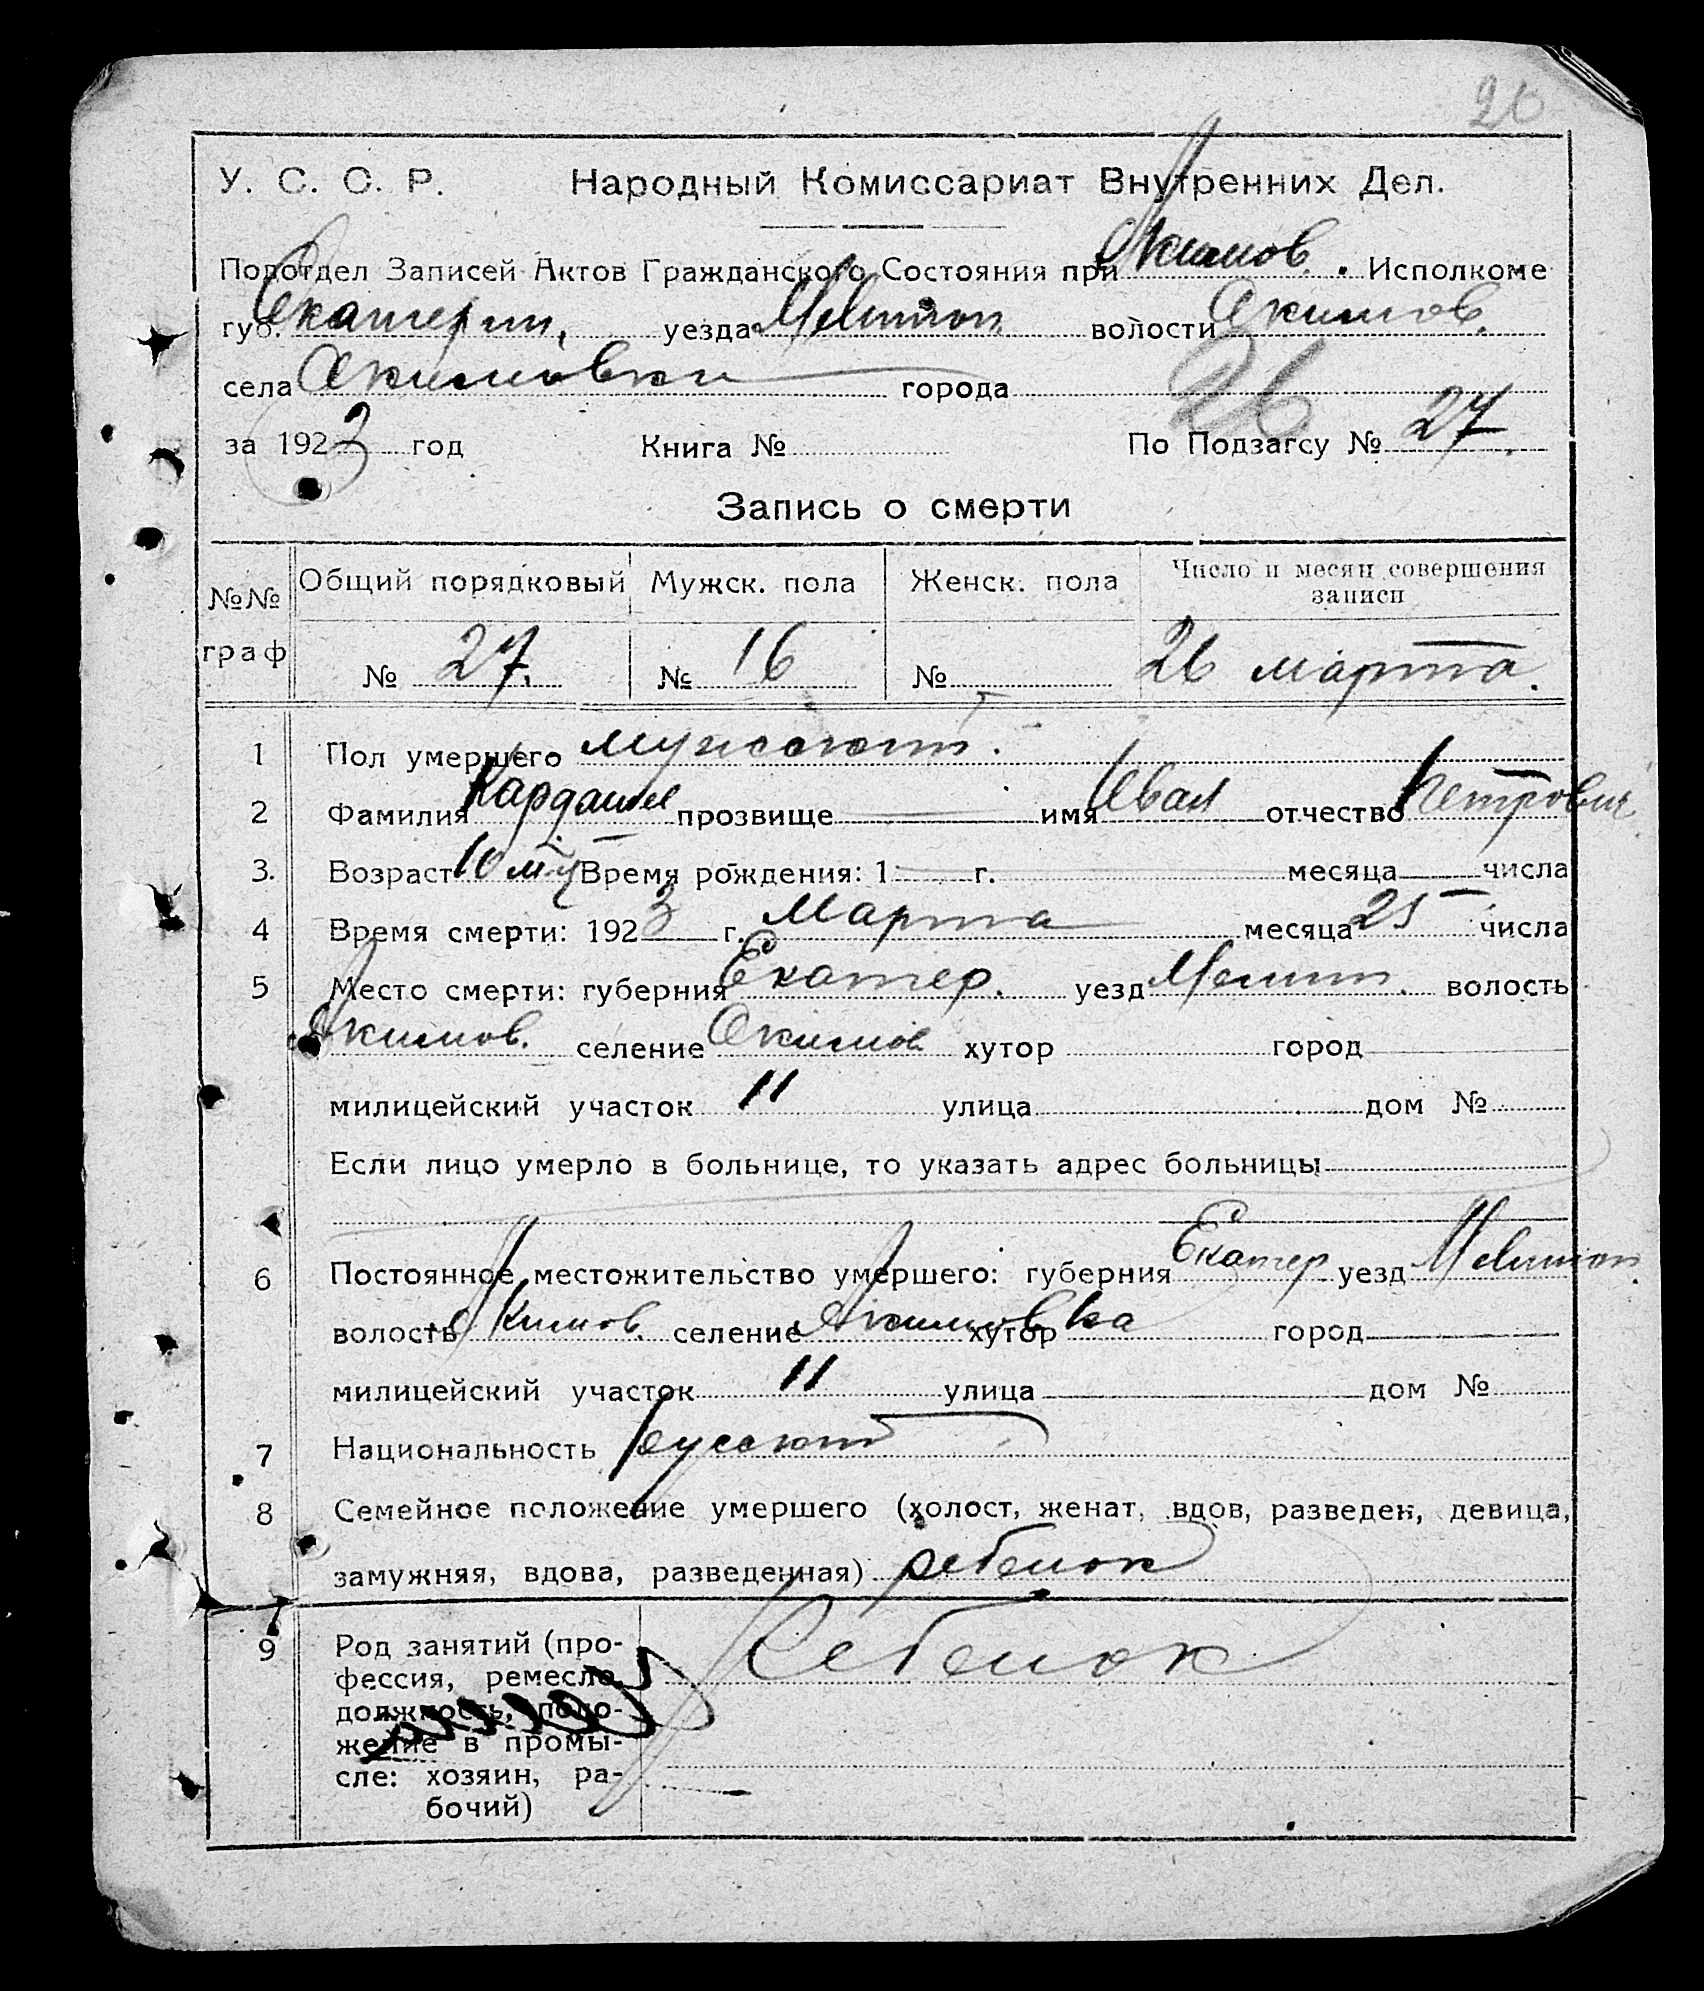 26
У. С. С. Р. Народный Комиссариат Внутренних Дел.
Подотдел Записей Актов Гражданского Состояния при Акимов. Исполкоме
губ. Екатерин. уезда Мелитоп. волости Акимов.
села Акимовки города
26
за 1923 год Книга № По Подзагсу № 27
Запись о смерти
№№ граф Общий порядковый Мужск. пола Женск. пола Число и месяц совершения записи
№ 27. № 16 № 26 марта.
1 Пол умершего мужской.
2 Фамилия Кардаш прозвище имя Иван отчество Петрович
3. Возраст 10 м-ц Время рождения: 1 г. месяца числа
4 Время смерти: 1923 г. Марта месяца 25 числа
5 Место смерти: губерния Екатер. уезд Мелит. волость
Акимов. селение Акимов. хутор город
милицейский участок 11 улица дом №
Если лицо умерло в больнице, то указать адрес больницы
6 Постоянное местожительство умершего: губерния Екатер уезд Мелитоп.
волость Акимов. селение Акимовка хутор город
милицейский участок 11 улица дом №
7 Национальность русский
8 Семейное положение умершего (холост, женат, вдов, разведен, девица,
замужняя, вдова, разведенная) ребенок
9 Род занятий (про- Ребенок
фессия, ремесло,
должность, поло-
жение в промы-
сле: хозяин, ра-
бочий)